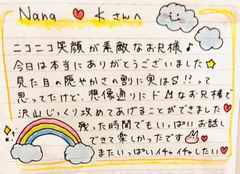 Nana ♥ 大さんへ
ニコニコ笑顔が素敵なお兄様♪
今日は本当にありがとうございました★
見た目の穏やかさの割に実はS!?って
思ってたけど、想像通りにドMなお兄様で
沢山じっくり攻めてあげることができました♥
残った時間でもいっぱいお話し
できて楽しかったです
またいっぱいイチャイチャしたい♥